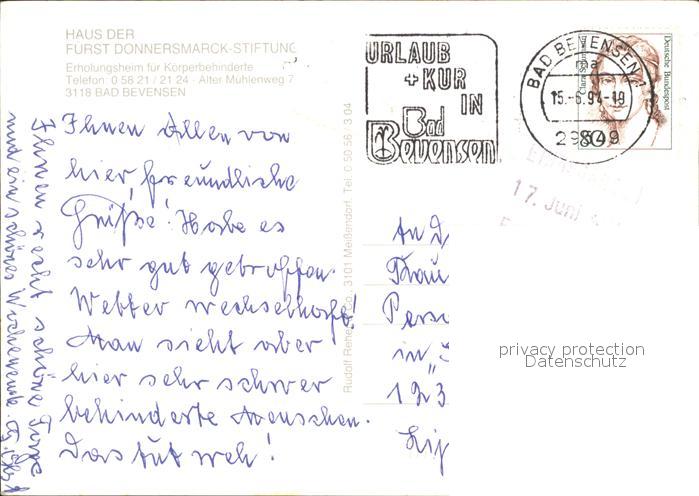 HAUS DER
FÜRST DONNERSMARCK-STIFTUNG
Erholungsheim für Körperbehinderte
Telefon: 0 58 21 / 21 24 · Alter Mühlenweg 7
3118 BAD BEVENSEN
URLAUB
+ KUR
IN
Bad
Bevensen
BAD BEVENSEN 1
ma
15.-6.94-19
29549
Deutsche Bundespost
80
17. Juni
Ihnen Allen von
hier, freundliche
Grüße! Habe es
sehr gut getroffen.
Wetter wechselhaft!
Man sieht aber
hier sehr schwer
behinderte Menschen.
Das tut weh!
Ihnen recht schöne Tage
und ein schönes Wochenende.
3101 Meißendorf. Tel. 0 50 56 / 3 04
An D
Frau
Pers
in
123
privacy protection
Datenschutz